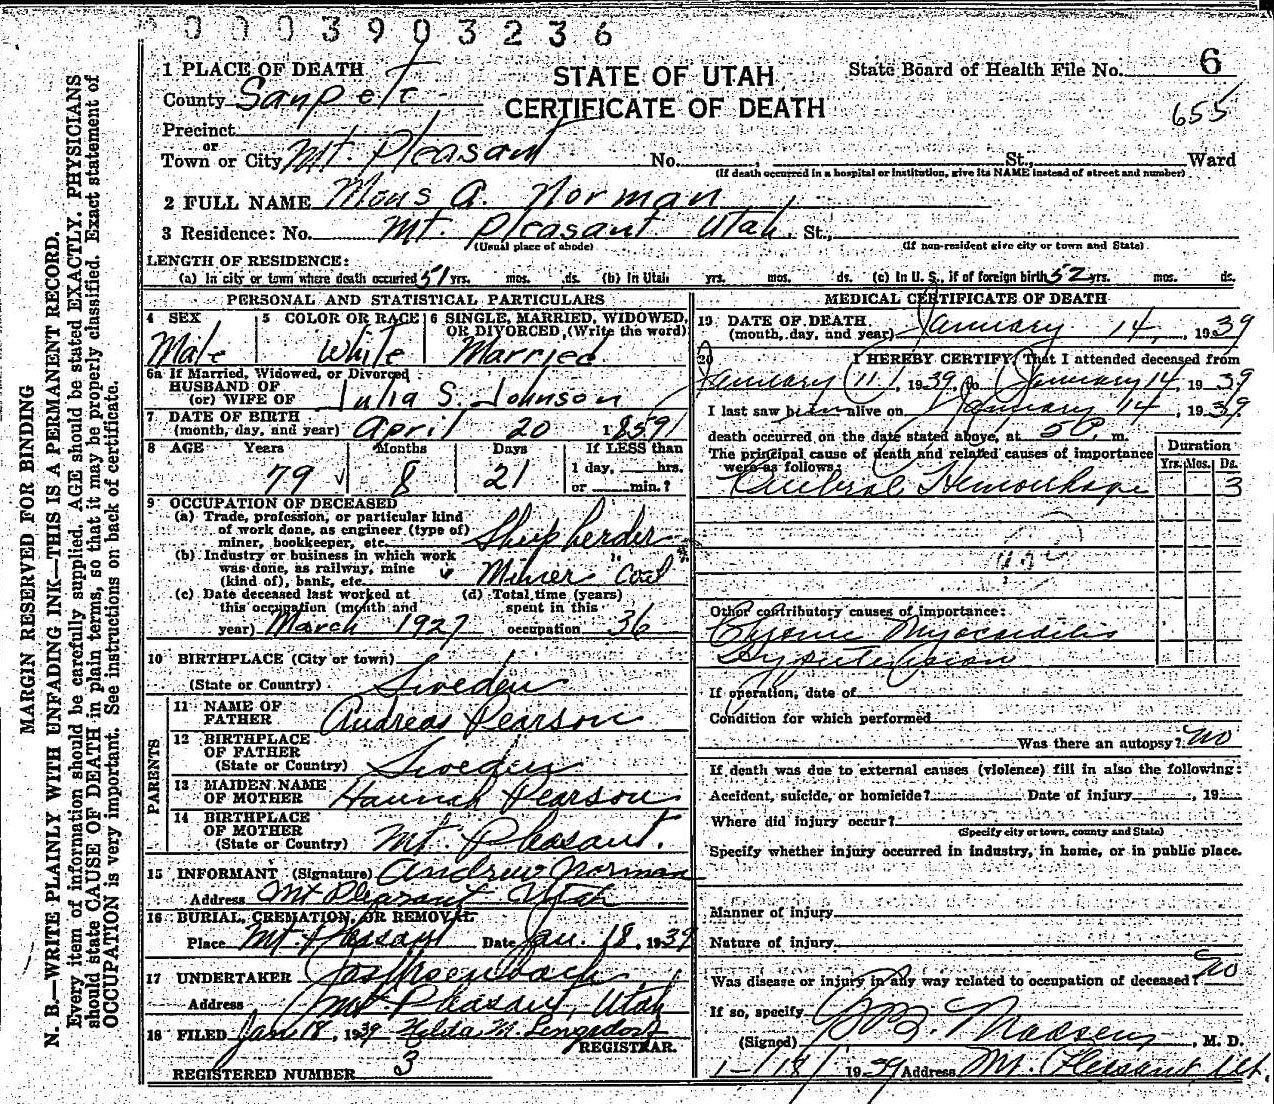 000390 3236
1 PLACE OF DEATH
STATE OF UTAH
CERTIFICATE OF DEATH
State Board of Health File No. 6
655
County Sanpete
Precinct
or
Town or City Mt. Pleasant No. , St., Ward
(If death occurred in a hospital or institution, give its NAME instead of street and number)
2 FULL NAME Mons A. Norman
3 Residence: No. Mt. Pleasant Utah, St.,
(Usual place of abode) (If non-resident give city or town and State)
LENGTH OF RESIDENCE:
(a) In city or town where death occurred 51 yrs. mos. ds. (b) In Utah yrs. mos. ds. (c) In U. S., if of foreign birth 52 yrs. mos. ds.
PERSONAL AND STATISTICAL PARTICULARS
4 SEX Male
5 COLOR OR RACE White
6 SINGLE, MARRIED, WIDOWED, OR DIVORCED, (Write the word) Married
6a If Married, Widowed, or Divorced
HUSBAND OF
(or) WIFE OF Julia S. Johnson
7 DATE OF BIRTH
(month, day, and year) April 20 1859
8 AGE Years Months Days If LESS than
79 8 21 1 day, hrs.
or min.?
9 OCCUPATION OF DECEASED
(a) Trade, profession, or particular kind
of work done, as engineer (type of)
miner, bookkeeper, etc. Sheep herder
(b) Industry or business in which work
was done, as railway, mine
(kind of), bank, etc. Miner "Coal"
(c) Date deceased last worked at
this occupation (month and
year) March 1927
(d) Total time (years)
spent in this
occupation 36
10 BIRTHPLACE (City or town)
(State or Country) Sweden
PARENTS
11 NAME OF
FATHER Andreas Pearson
12 BIRTHPLACE
OF FATHER
(State or Country) Sweden
13 MAIDEN NAME
OF MOTHER Hannah Pearson
14 BIRTHPLACE
OF MOTHER
(State or Country) Mt. Pleasant.
15 INFORMANT (Signature) Andrew Norman
Address Mt Pleasant Utah
16 BURIAL, CREMATION, OR REMOVAL
Place Mt. Pleasant Date Jan. 18, 1939
17 UNDERTAKER
Address Mt. Pleasant, Utah
18 FILED Jan 18, 1939 Hilda M.
REGISTRAR.
REGISTERED NUMBER 3
MEDICAL CERTIFICATE OF DEATH
19 DATE OF DEATH
(month, day, and year) January 14, 1939
20 I HEREBY CERTIFY, That I attended deceased from
January 11, 1939, to January 14, 1939
I last saw him alive on January 14, 1939,
death occurred on the date stated above, at 5 P. m.
The principal cause of death and related causes of importance
were as follows:
Duration
Yrs. Mos. Ds.
Cerebral Hemorrhage 3
Other contributory causes of importance:
Chronic Myocarditis
Hypertension
If operation, date of
Condition for which performed
Was there an autopsy? No
If death was due to external causes (violence) fill in also the following:
Accident, suicide, or homicide? Date of injury , 19
Where did injury occur?
(Specify city or town, county and State)
Specify whether injury occurred in industry, in home, or in public place.
Manner of injury
Nature of injury
Was disease or injury in any way related to occupation of deceased? No
If so, specify
(Signed) Madsen, M. D.
1-18/ 1939 Address Mt. Pleasant Ut.
MARGIN RESERVED FOR BINDING
N. B.—WRITE PLAINLY WITH UNFADING INK—THIS IS A PERMANENT RECORD.
Every item of information should be carefully supplied. AGE should be stated EXACTLY. PHYSICIANS
should state CAUSE OF DEATH in plain terms, so that it may be properly classified. Exact statement of
OCCUPATION is very important. See instructions on back of certificate.